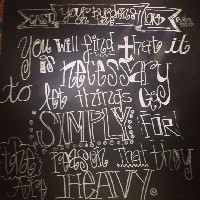 CAST your
You will find that it
is necessary
to let things Go
SIMPLY FOR
the reason that they
are HEAVY.